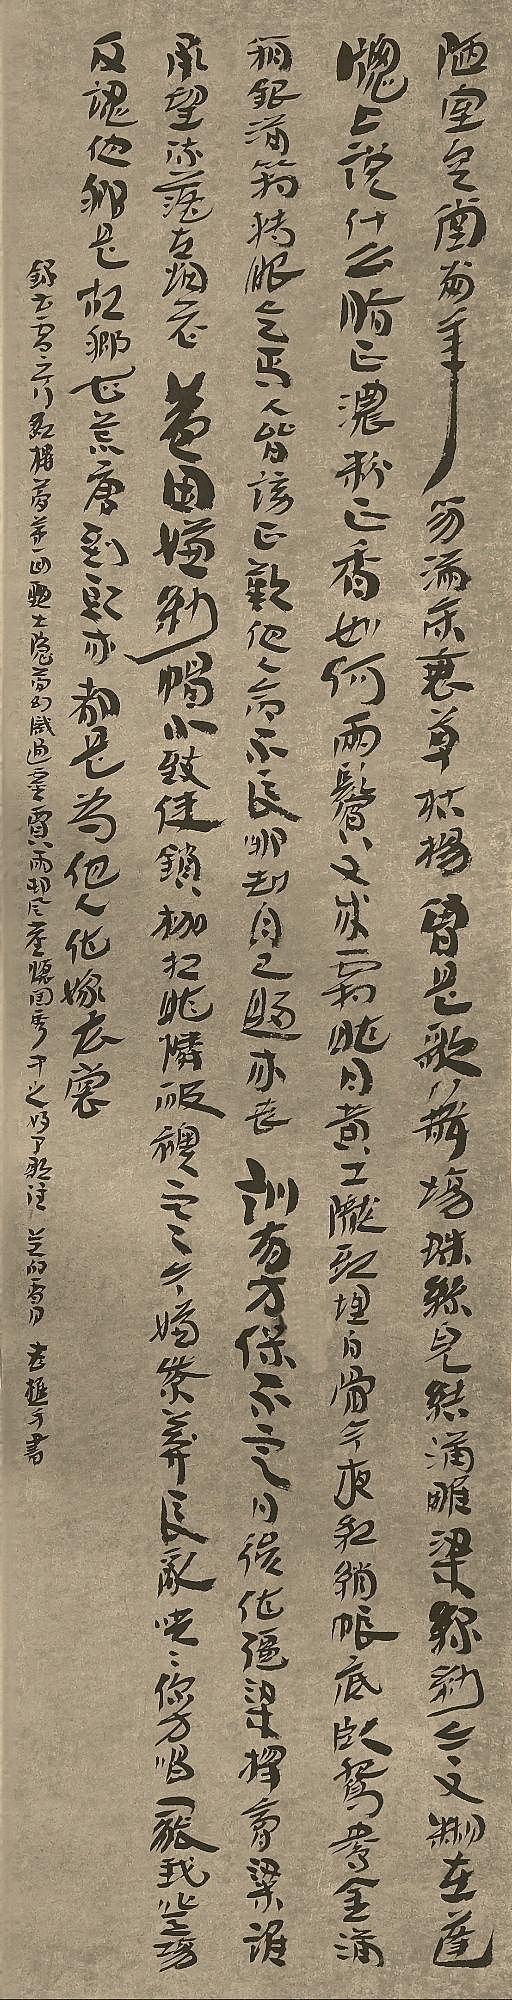 陋室空堂當年笏滿床衰草枯楊曾是歌舞場蛛絲兒結滿雕梁綠紗今又糊在蓬
牕上說什么脂正濃粉正香如何兩鬢又成霜昨日黃土隴頭埋白骨今夜紅綃帳底臥鴛鴦金滿
箱銀滿箱轉眼乞丐人皆謗正歎他人命不長那知自己歸來喪訓有方保不定日後作強梁擇膏粱誰
承望流落在烟花巷因嫌紗帽小致使鎖枷扛昨憐破襖寒今嫌紫蟒長亂哄哄你方唱罷我登場
反認他鄉是故鄉甚荒唐到頭來都是為他人作嫁衣裳
錄曹雪芹紅樓夢第一回甄士隱夢幻識通靈賈雨村風塵懷閨秀中之好了歌注